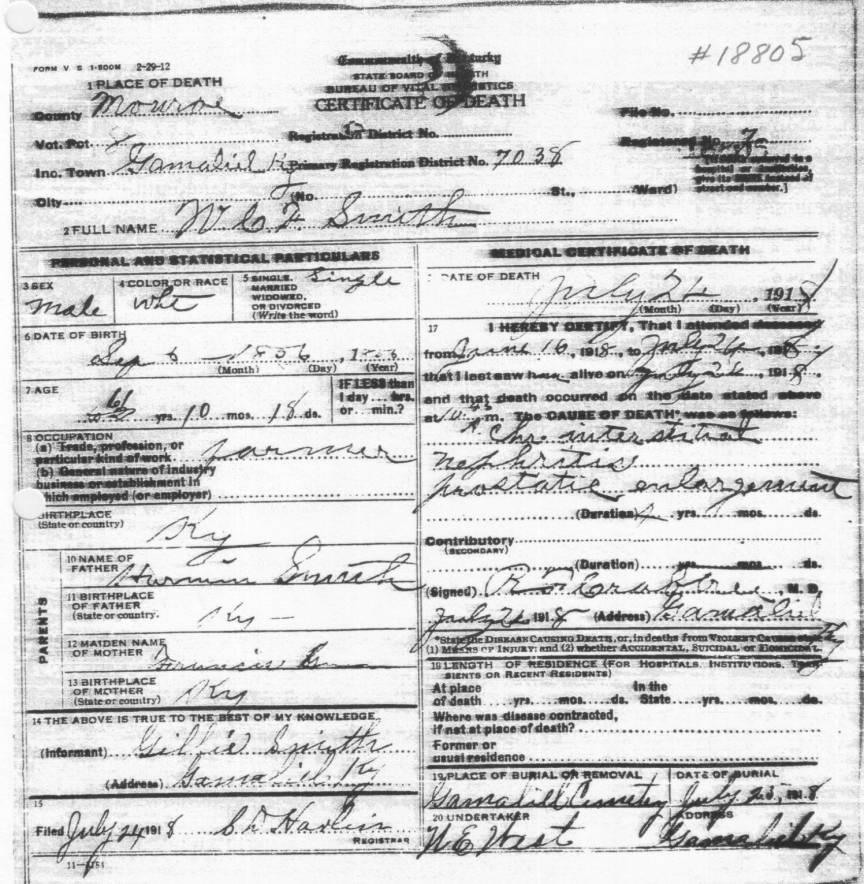 #18805
FORM V S 1-500M 2-29-12
Commonwealth of Kentucky
STATE BOARD OF HEALTH
BUREAU OF VITAL STATISTICS
CERTIFICATE OF DEATH
1 PLACE OF DEATH
County Monroe
Vot. Pct.
Inc. Town Gamaliel Ky
City
Registration District No.
Primary Registration District No. 7038
(No. St., Ward)
File No.
Registered No. 7
2 FULL NAME W C F Smith
PERSONAL AND STATISTICAL PARTICULARS
3 SEX
male
4 COLOR OR RACE
wht
5 SINGLE, MARRIED WIDOWED, OR DIVORCED (Write the word)
Single
6 DATE OF BIRTH
Sep 6 1856
(Month) (Day) (Year)
7 AGE
61 yrs. 10 mos. 18 ds.
IF LESS than
1 day ... hrs.
or ... min.?
8 OCCUPATION
(a) Trade, profession, or
particular kind of work farmer
(b) General nature of industry
business or establishment in
which employed (or employer)
BIRTHPLACE
(State or country)
Ky
PARENTS
10 NAME OF FATHER
Smith
11 BIRTHPLACE OF FATHER
(State or country.
Ky
12 MAIDEN NAME OF MOTHER
13 BIRTHPLACE OF MOTHER
(State or country)
Ky
14 THE ABOVE IS TRUE TO THE BEST OF MY KNOWLEDGE
(Informant) Gillie Smith
(Address) Gamaliel Ky
15
Filed July 24 1918
REGISTRAR
11-1151
MEDICAL CERTIFICATE OF DEATH
DATE OF DEATH
July 24 1918
(Month) (Day) (Year)
17 I HEREBY CERTIFY, That I attended deceased
from June 16, 1918, to July 24, 1918,
that I last saw h alive on July 24, 1918,
and that death occurred on the date stated above
at m. The CAUSE OF DEATH* was as follows:
Chr. interstitial
nephritis
prostatic enlargement
(Duration) yrs. mos. ds.
Contributory
(SECONDARY)
(Duration) yrs. mos. ds.
(Signed) Crabtree, M. D.
July 24 1918 (Address) Gamaliel
*State the DISEASE CAUSING DEATH, or, in deaths from VIOLENT CAUSES state
(1) MEANS OF INJURY; and (2) whether ACCIDENTAL, SUICIDAL or HOMICIDAL.
18 LENGTH OF RESIDENCE (FOR HOSPITALS, INSTITUTIONS, TRANSIENTS OR RECENT RESIDENTS)
At place of death yrs. mos. ds. In the State yrs. mos. ds.
Where was disease contracted,
if not at place of death?
Former or
usual residence
19 PLACE OF BURIAL OR REMOVAL
DATE OF BURIAL
July 25, 1918
20 UNDERTAKER
ADDRESS
W E West Gamaliel Ky